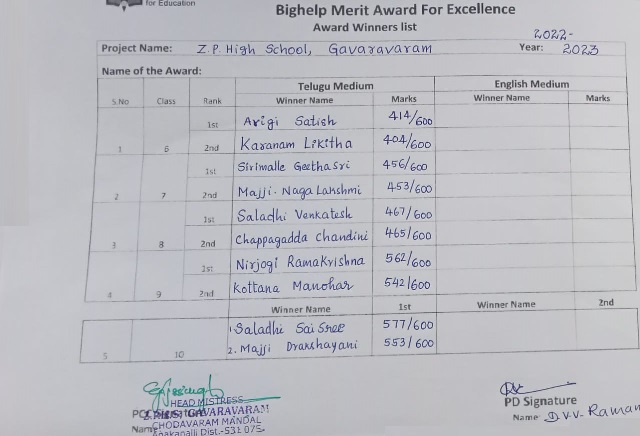 for Education
Bighelp Merit Award For Excellence
Award Winners list
2022-
Project Name: Z.P. High School, Gavaravaram Year: 2023
Name of the Award:
Telugu Medium English Medium
S.No Class Rank Winner Name Marks Winner Name Marks
1st Arigi Satish 414/600
1 6 2nd Karanam Likitha 404/600
1st Sirimalle Geethasri 456/600
2 7 2nd Majji. Naga Lakshmi 453/600
1st Saladhi Venkatesh 467/600
3 8 2nd Chappagadda Chandini 465/600
1st Nirjogi Ramakrishna 562/600
4 9 2nd Kottana Manohar 542/600
Winner Name 1st Winner Name 2nd
1. Saladhi Sai Sree 577/600
5 10 2. Majji Drakshayani 553/600
HEAD MISTRESS
GAVARAVARAM
CHODAVARAM MANDAL
Dist.-531 075
PD Signature
Name: D.V.V. Raman